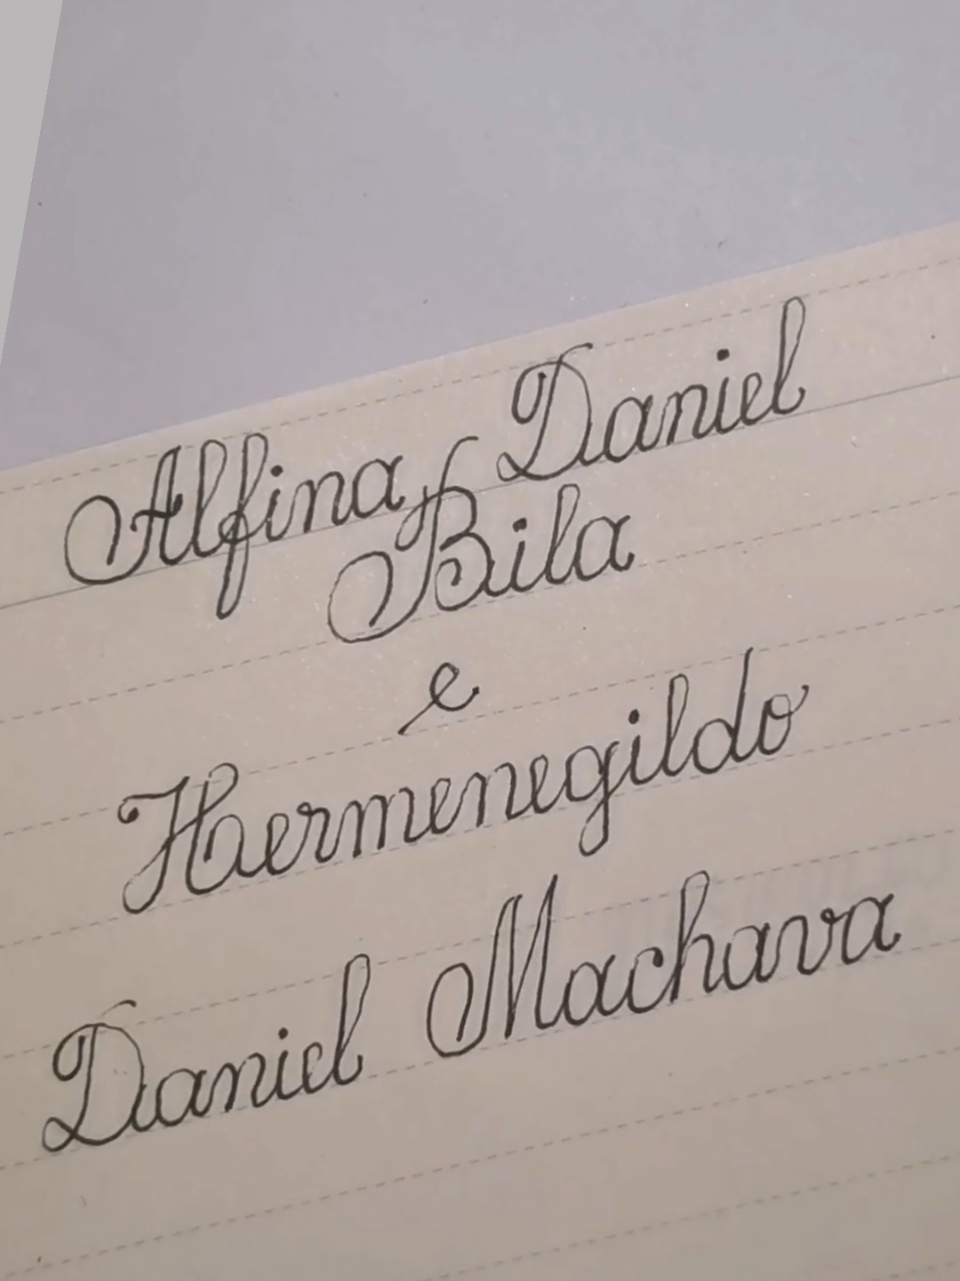 Alfina Daniel
Bila
e
Hermenegildo
Daniel Machava